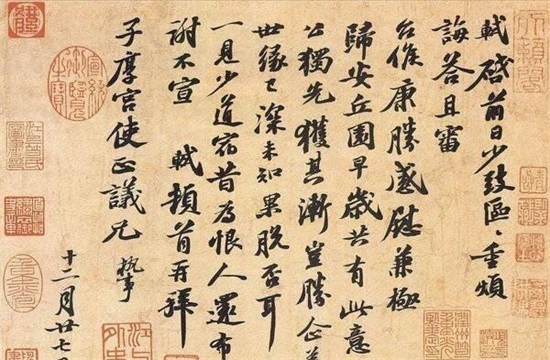 軾啓前日少致區區重煩
誨答且審
台候康勝感慰兼極
歸安丘園早歲共有此意
公獨先獲其漸豈勝企羨
世緣已深未知果脫否耳
一見少道宿昔爲恨人還布
謝不宣　軾頓首再拜
子厚宮使正議兄　執事
十二月廿七日